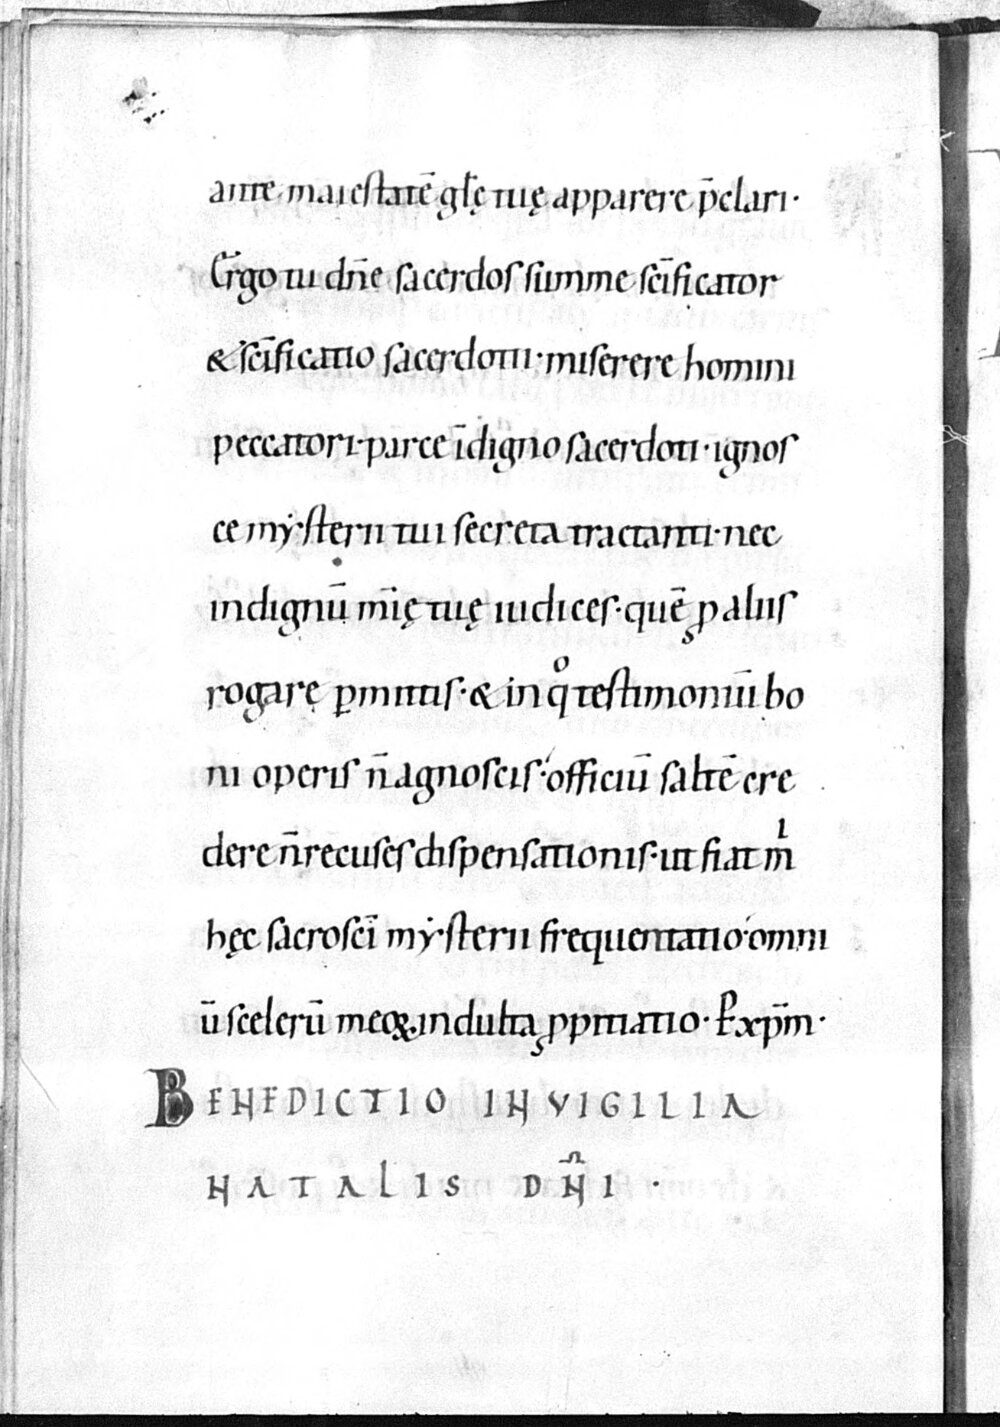 ante maiestatē gl̄ę tuę apparere p̄clari·
Ergo tu dn̄e sacerdos summe sc̄ificator
& sc̄ificatio sacerdotii· miserere homini
peccatori· parce īdigno sacerdoti· ignos
ce mẏsterii tui secreta tractanti· nec
indignū m̄ię tuę iudices· quē ꝓ aliis
rogare ꝑmittis· & in qͦ testimoniū bo
ni operis n̄ agnoscis· officiū saltē cre
dere n̄ recuses dispensationis· ut fiat m̄ⁱ
hęc sacrosc̄i mẏsterii frequentatio omni
ū scelerū meoꝝ indulta ꝓpitiatio· P xp̄m·
BENEDICTIO IN VIGILIA
NATALIS DN̄I ·